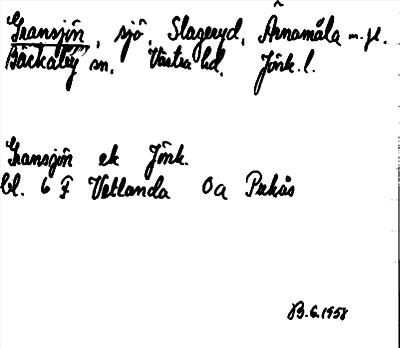 Gransjön, sjö, Slageryd, Årnamåla m.fl.
Bäckaby sn. Västra hd. Jönk. l.
Gransjön ek Jönk.
bl. 6 F Vetlanda 0a Pukås
B.G. 1958